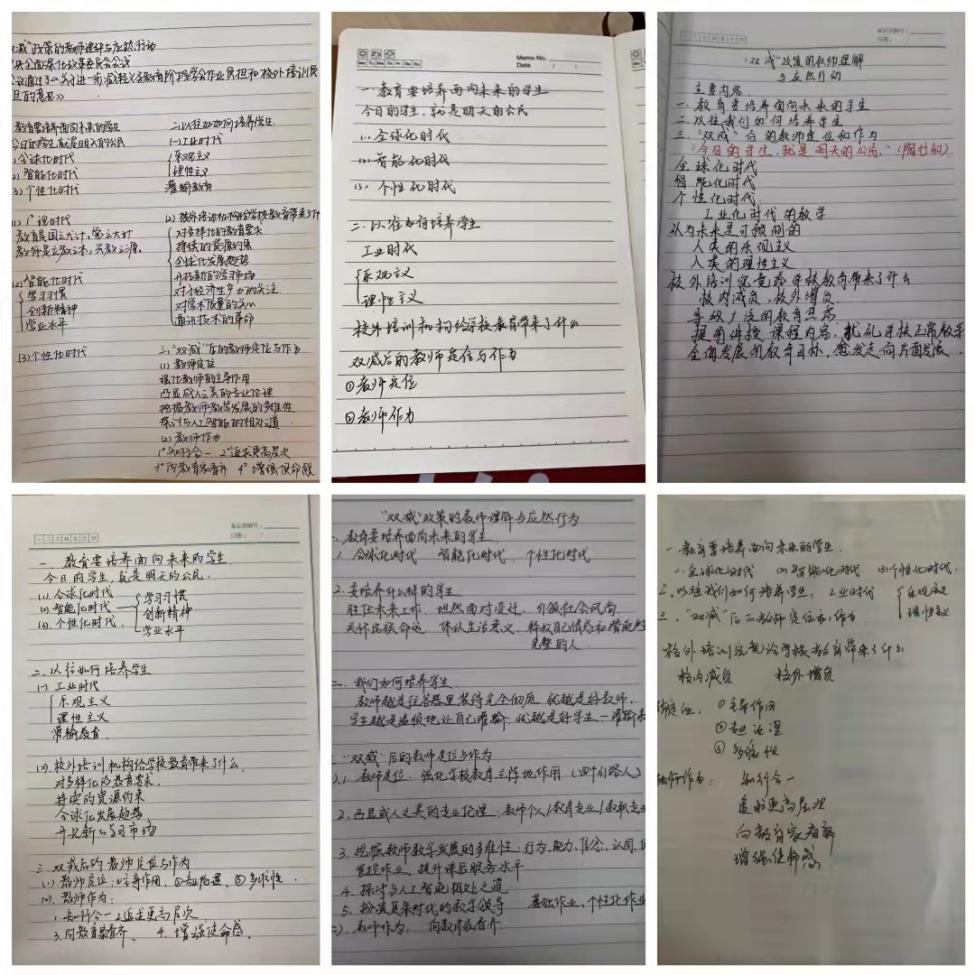 双减"政策的教师理解与应然行动
央全面深化改革委员会会议
议通过了《关于进一步减轻义务教育阶段学生作业负担和校外培训负
担的意见》
教育要培养面向未来的学生
今日的学生就是明天的公民
全球化时代
2) 智能化时代
3) 个性化时代
(1) 1°球时代
教育是国之大计,党之大计
教师是立教之本,兴教之源。
(2) 智能化时代
学习习惯
创新精神
学业水平
(3) 个性化时代
二、以往如何培养学生
(一) 工业时代
乐观主义
理性主义
灌输教育
(2) 校外培训机构给学校教育带来了什
对多样化的教育需求
持续的资源约束
全球化发展趋势
开拓新的学习市场
对于经济生产力的关注
对学术质量的关心
通讯技术的革命
三、"双减"后的教师定位与作为
(1) 教师定位
强化教师的主导作用
凸显成人之美的专业伦理
挖掘教师教学发展的多维性
探讨与人工智能的相处之道
(2) 教师作为
1°知行合一 2°追求更高层次
3°向教育家看齐 4°增强使命感
Memo No.
Date / /
一、教育要培养面向未来的学生
今日的学生,就是明天的公民
(1) 全球化时代
(2) 智能化时代
(3) 个性化时代
二、以往如何培养学生
工业时代
乐观主义
理性主义
校外培训机构给学校教育带来了什么
双减后的教师定位与作为
①教师定位
②教师作为
"双减"政策的教师理解
与应然行动
主要内容
一、教育要培养面向未来的学生
二、以往我们如何培养学生
三、"双减"后的教师定位和作为
"今日的学生,就是明天的公民。"(陶行知)
全球化时代
智能化时代
个性化时代
工业化时代的教学
认为未来是可预测的
人类的乐观主义
人类的理性主义
校外培训究竟给学校教育带来了什么
校内减负,校外增负
导致广泛的教育焦虑
提前讲授课程内容,扰乱学校正常教学
全面发展的教育目标,愈发走向片面发展。
一、教育要培养面向未来的学生
今日的学生,就是明天的公民。
(1) 全球化时代
(2) 智能化时代
(3) 个性化时代
学习习惯
创新精神
学业水平
二、以往如何培养学生
(一) 工业时代
乐观主义
理性主义
灌输教育
(2) 校外培训机构给学校教育带来了什么
对多样化的教育需求,
持续的资源约束
全球化发展趋势
开拓新的学习市场
三、双减后的教师定位与作为
(1) 教师定位:①主导作用,②专业伦理,③多维性。
(2) 教师作为:
1. 知行合一 2. 追求更高层次
3. 向教育家看齐、 4. 增强使命感。
"双减"政策的教师理解与应然行为
一、教育要培养面向未来的学生
1. 全球化时代 智能化时代 个性化时代
2. 要培养什么样的学生
胜任未来工作、坦然面对变迁、引领社会风尚
关怀民族命运、体认生活意义、释放自己情感和潜能的
完整的人
二、我们如何培养学生
教师越是往容器里装得完全彻底,就越是好教师,
学生越是温顺地让自己灌输,就越是好学生—灌输
"双减"后的教师定位与作为
1. 教师定位:强化学校教育主阵地作用(四个引路人)
2. 凸显成人之美的专业伦理:教师个人/教育专业/教职专业
3. 挖掘教师教学发展的多维性:行为、能力、信念、认同、
管控作业,提升课后服务水平
4. 探讨与人工智能相处之道
5. 扮演复杂时代的教学领导 基础作业、个性化作业
教师作为: 向教育家看齐
一、教育要培养面向未来的学生
(1) 全球化时代 (2) 智能化时代 (3) 个性化时代.
二、以往我们如何培养学生: 工业时代
乐观主义
理性主义
三、"双减"后的教师定位和作为
校外培训究竟给学校教育带来了什么
校内减负 校外增负
定位: ①主导作用
②专业伦理
③多维性
教师作为: 知行合一
追求更高层次
向教育家看齐
增强使命感